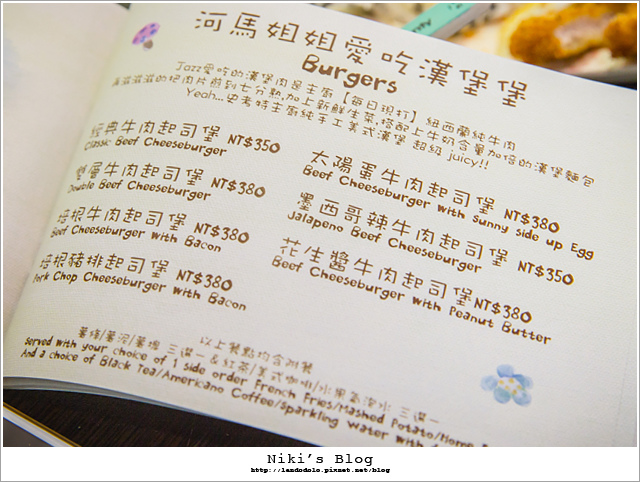 河馬姐姐愛吃漢堡堡
Burgers
Jazz愛吃的漢堡肉是主廚【每日現打】紐西蘭純牛肉
再滋滋滋的把肉片煎到七分熟,加上新鮮生菜,搭配上牛奶含量加倍的漢堡麵包
Yeah...史考特主廚純手工美式漢堡 超級 juicy!!
經典牛肉起司堡 NT$350
Classic Beef Cheeseburger
雙層牛肉起司堡 NT$380
Double Beef Cheeseburger
培根牛肉起司堡 NT$380
Beef Cheeseburger with Bacon
培根豬排起司堡 NT$380
Pork Chop Cheeseburger with Bacon
太陽蛋牛肉起司堡 NT$380
Beef Cheeseburger with Sunny side up Egg
墨西哥辣牛肉起司堡 NT$350
Jalapeno Beef Cheeseburger
花生醬牛肉起司堡 NT$380
Beef Cheeseburger with Peanut Butter
以上餐點均含附餐
薯條/薯泥/薯塊 三選一 & 紅茶/美式咖啡/水果氣泡水 三選一
served with your choice of 1 side order French Fries/Mashed Potato/Home
And a choice of Black Tea/Americano Coffee/Sparkling Water with
Niki's Blog
http://landodolo.pixnet.net/blog